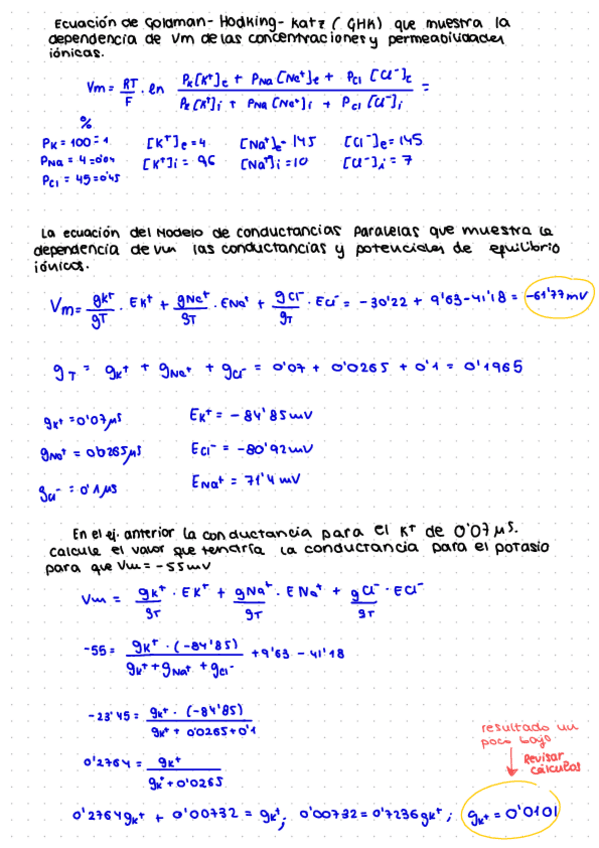 Ecuación de Goldman-Hodking-Katz (GHK) que muestra la
dependencia de Vm de las concentraciones y permeabilidades
iónicas.
Vm = RT/F · ln (Pk[K⁺]e + PNa[Na⁺]e + PCl[Cl⁻]e) / (Pk[K⁺]i + PNa[Na⁺]i + PCl[Cl⁻]i) =
%
PK = 100 = 1 [K⁺]e = 4 [Na⁺]e = 145 [Cl⁻]e = 145
PNa = 4 = 0'04 [K⁺]i = 96 [Na⁺]i = 10 [Cl⁻]i = 7
PCl = 45 = 0'45
La ecuación del Modelo de conductancias Paralelas que muestra la
dependencia de Vm las conductancias y potenciales de equilibrio
iónicos.
Vm = gK⁺/gT · EK⁺ + gNa⁺/gT · ENa⁺ + gCl⁻/gT · ECl⁻ = -30'22 + 9'63 - 41'18 = -61'77 mV
gT = gK⁺ + gNa⁺ + gCl⁻ = 0'07 + 0'0265 + 0'1 = 0'1965
gK⁺ = 0'07 µS EK⁺ = -84'85 mV
gNa⁺ = 0'0265 µS ECl⁻ = -80'92 mV
gCl⁻ = 0'1 µS ENa⁺ = 71'4 mV
En el ej. anterior la conductancia para el K⁺ de 0'07 µS.
calcule el valor que tendría la conductancia para el potasio
para que Vm = -55 mV
Vm = gK⁺/gT · EK⁺ + gNa⁺/gT · ENa⁺ + gCl⁻/gT · ECl⁻
-55 = gK⁺ · (-84'85) / (gK⁺ + gNa⁺ + gCl⁻) + 9'63 - 41'18
-23'45 = gK⁺ · (-84'85) / (gK⁺ + 0'0265 + 0'1)
resultado un
poco bajo
Revisar
cálculos
0'2764 = gK⁺ / (gK⁺ + 0'0265)
0'2764 gK⁺ + 0'00732 = gK⁺; 0'00732 = 0'7236 gK⁺; gK⁺ = 0'0101